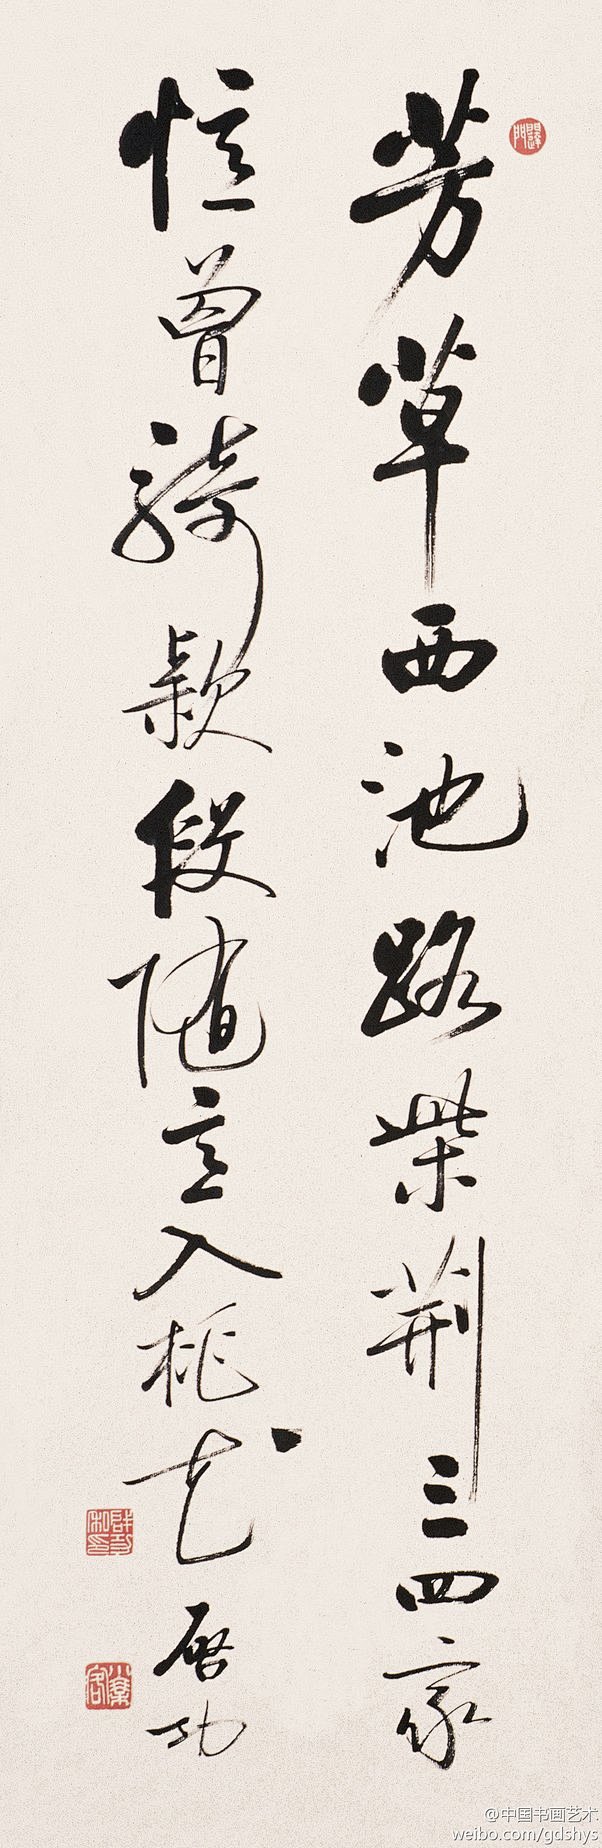 芳草西池路柴荆三四家
忆曾骑款段随意入桃花
启功
@中国书画艺术
weibo.com/gdshys